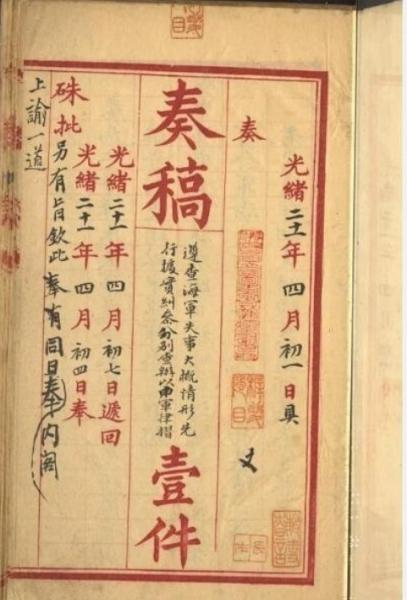 奏
光緒二十一年四月初一日具
奏稿
遵查海軍失事大概情形先
行據實糾參分別查辦以申軍律摺
壹件
光緒二十一年四月初七日遞回
光緒二十一年四月初四日奉
硃批另有旨欽此奉有同日奉內閣
上諭一道